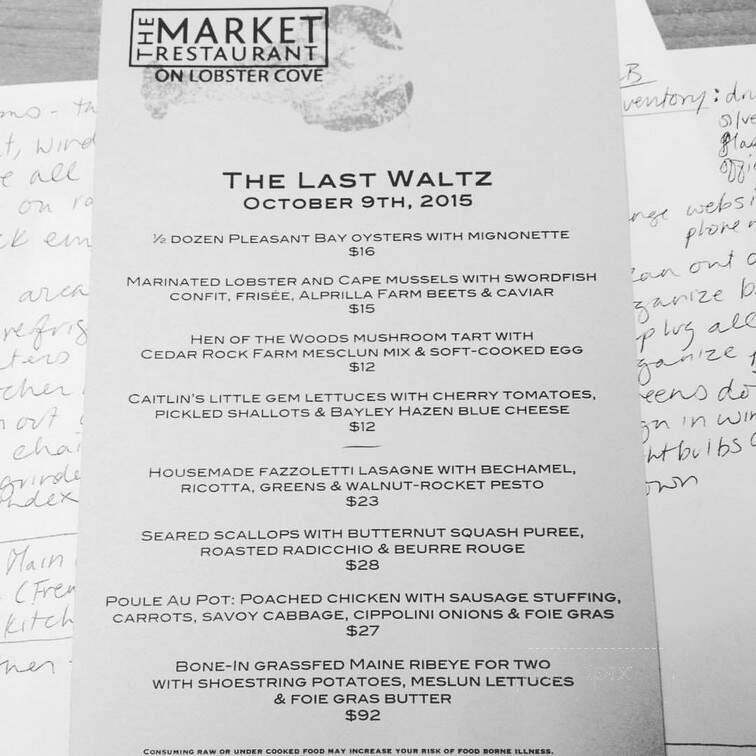 THE MARKET
RESTAURANT
ON LOBSTER COVE
THE LAST WALTZ
OCTOBER 9TH, 2015
½ DOZEN PLEASANT BAY OYSTERS WITH MIGNONETTE
$16
MARINATED LOBSTER AND CAPE MUSSELS WITH SWORDFISH
CONFIT, FRISÉE, ALPRILLA FARM BEETS & CAVIAR
$15
HEN OF THE WOODS MUSHROOM TART WITH
CEDAR ROCK FARM MESCLUN MIX & SOFT-COOKED EGG
$12
CAITLIN'S LITTLE GEM LETTUCES WITH CHERRY TOMATOES,
PICKLED SHALLOTS & BAYLEY HAZEN BLUE CHEESE
$12
HOUSEMADE FAZZOLETTI LASAGNE WITH BECHAMEL,
RICOTTA, GREENS & WALNUT-ROCKET PESTO
$23
SEARED SCALLOPS WITH BUTTERNUT SQUASH PUREE,
ROASTED RADICCHIO & BEURRE ROUGE
$28
POULE AU POT: POACHED CHICKEN WITH SAUSAGE STUFFING,
CARROTS, SAVOY CABBAGE, CIPPOLINI ONIONS & FOIE GRAS
$27
BONE-IN GRASSFED MAINE RIBEYE FOR TWO
WITH SHOESTRING POTATOES, MESLUN LETTUCES
& FOIE GRAS BUTTER
$92
CONSUMING RAW OR UNDER COOKED FOOD MAY INCREASE YOUR RISK OF FOOD BORNE ILLNESS.
all
on
area
out
Main
kitch
B
ventory:
phone
out
plug all
do
in
own